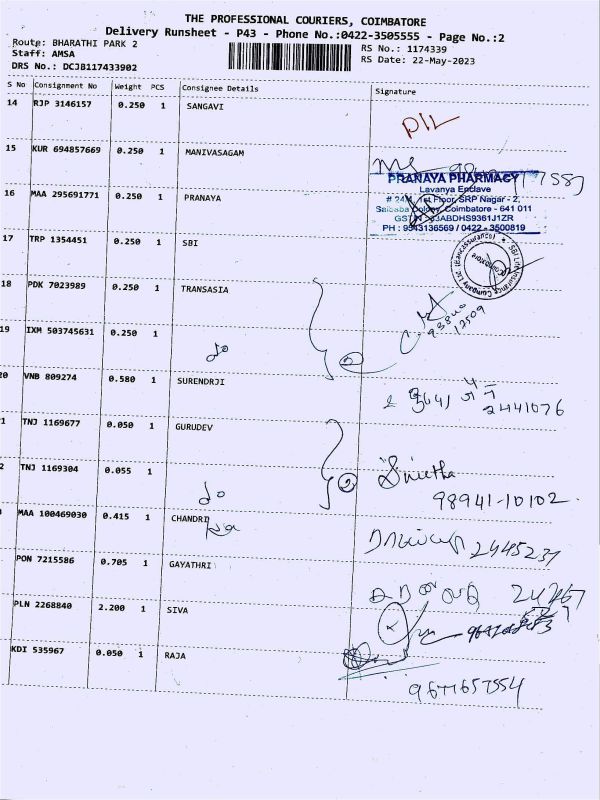 THE PROFESSIONAL COURIERS, COIMBATORE
Delivery Runsheet - P43 - Phone No.:0422-3505555 - Page No.:2
Route: BHARATHI PARK 2
RS No.: 1174339
Staff: AMSA
RS Date: 22-May-2023
DRS No.: DCJB117433902
S No Consignment No Weight PCS Consignee Details Signature
14 RJP 3146157 0.250 1 SANGAVI
15 KUR 694857669 0.250 1 MANIVASAGAM
PRANAYA PHARMACY
Lavanya Enclave
16 MAA 295691771 0.250 1 PRANAYA
1st Floor, SRP Nagar - 2,
Saibaba Colony, Coimbatore - 641 011
PH : 9543136569 / 0422 - 3500819
17 TRP 1354451 0.250 1 SBI
18 PDK 7023989 0.250 1 TRANSASIA
19 IXM 503745631 0.250 1
do
20 VNB 809274 0.580 1 SURENDRJI
2441076
1 TNJ 1169677 0.050 1 GURUDEV
2 TNJ 1169304 0.055 1
do 2
98941-10102
MAA 100469030 0.415 1 CHANDRI
2445237
PON 7215586 0.705 1 GAYATHRI
PLN 2268840 2.200 1 SIVA
KDI 535967 0.050 1 RAJA
9677657554